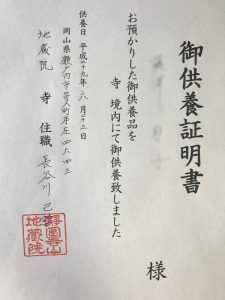 御供養証明書
様
お預かりした御供養品を
寺 境内にて御供養致しました
供養日 平成二十九年 八月二十三日
岡山県瀬戸内市
地蔵院 寺 住職 長谷川
地蔵院